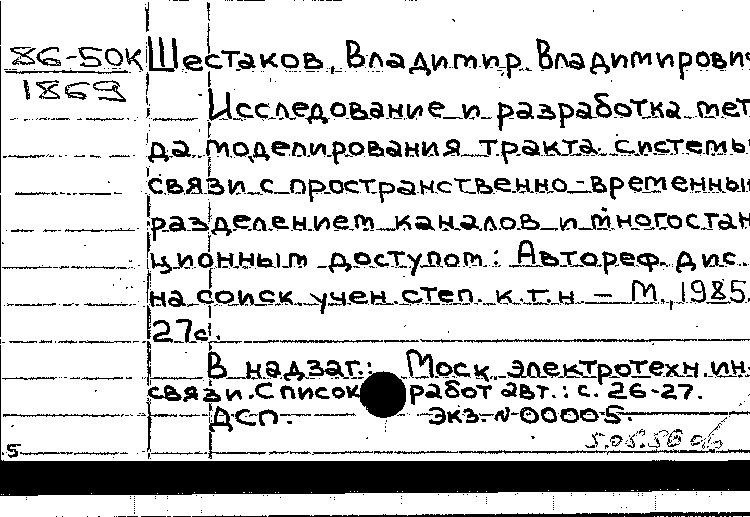 86-50К Шестаков, Владимир Владимирович
1869
Исследование и разработка мет
да моделирования тракта системы
связи с пространственно-временным
разделением каналов и многостан
ционным доступом: Автореф. дис.
на соиск. учен. степ. к.т.н – М., 1985.
27с.
В надзаг.: Моск. электротехн. ин.
связи. Список работ авт.: с. 26-27.
ДСП. Экз. N 00005.
5